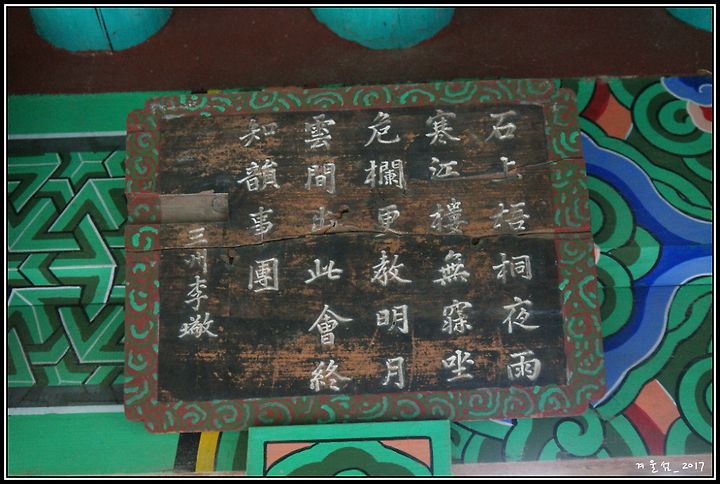 石上梧桐夜雨
寒江樓無寐坐
危欄更教明月
雲間出此會終
知韻事團
三州李
겨울섬_2017